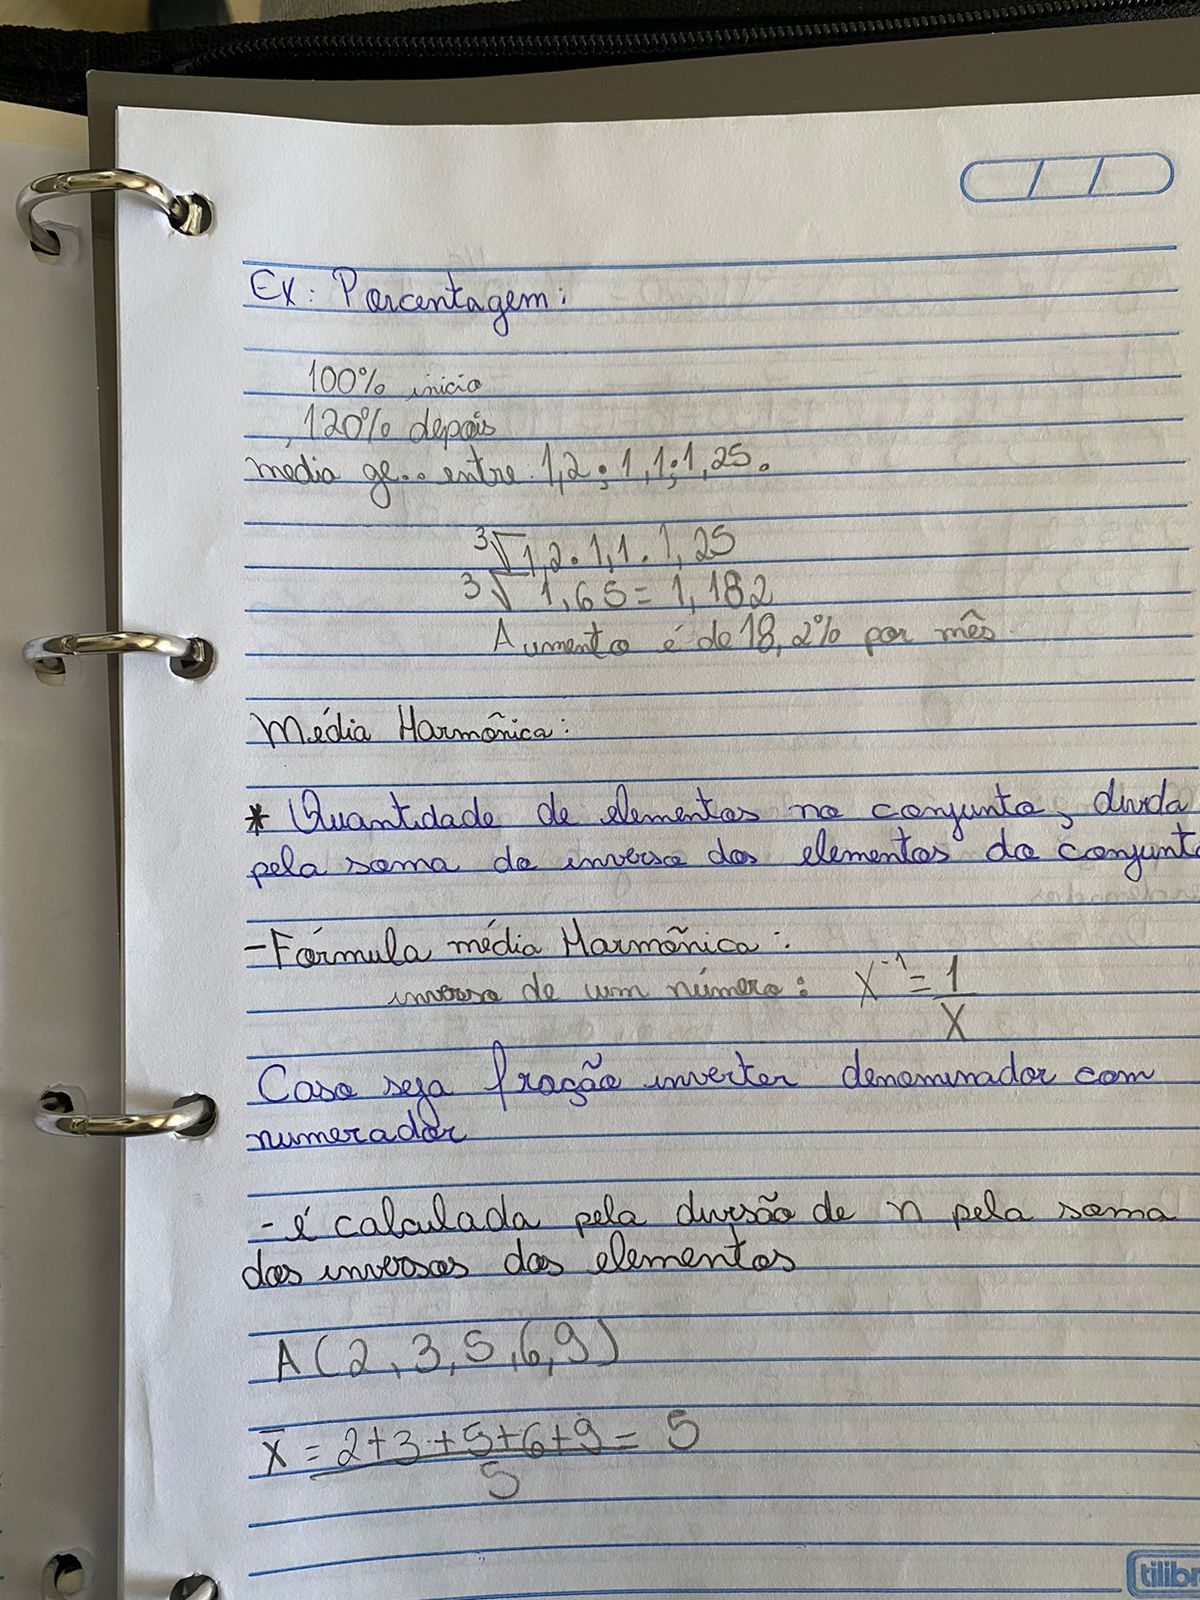 Ex: Porcentagem:
100% inicio
120% depois
média ge.. entre 1,2 ; 1,1 ; 1,25.
³√1,2 . 1,1 . 1,25
³√ 1,65 = 1,182
Aumento é de 18,2% por mês
Média Harmônica:
* Quantidade de elementos no conjunto, divida
pela soma do inverso dos elementos do conjunto
- Fórmula média Harmônica:
inverso de um número: X⁻¹ = 1/X
Caso seja fração inverter denominador com
numerador
- é calculada pela divisão de n pela soma
dos inversos dos elementos
A (2, 3, 5, 6, 9)
x̄ = 2+3+5+6+9 = 5
5
tilibr